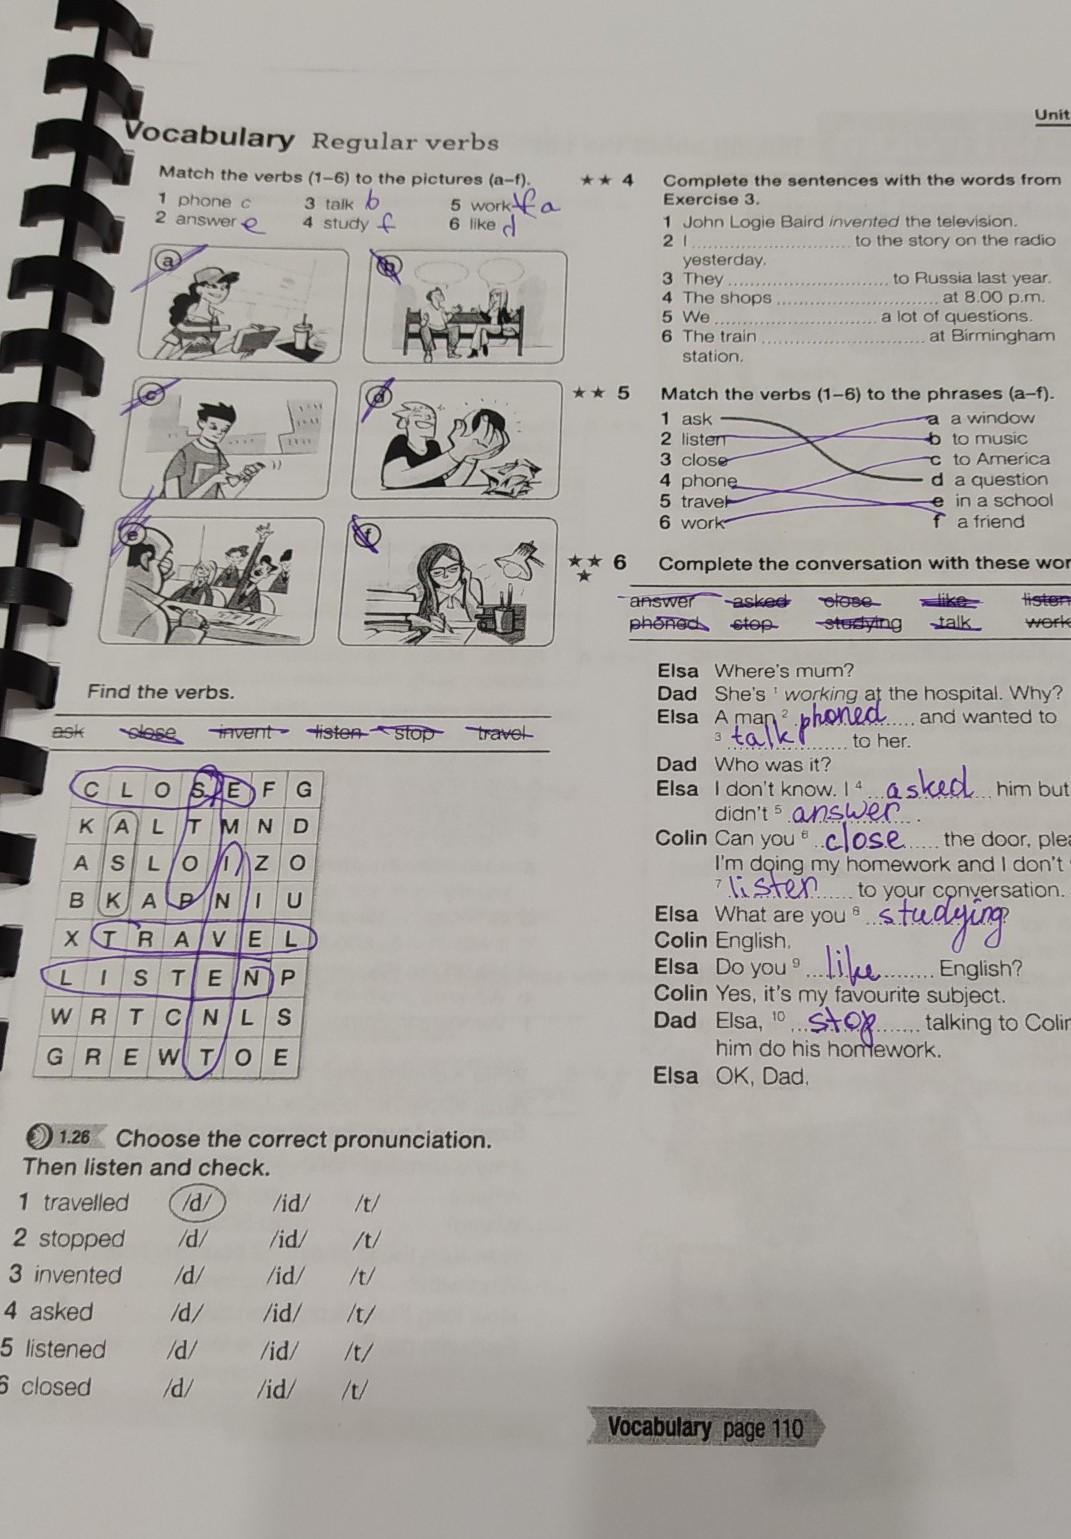 Unit
Vocabulary Regular verbs
Match the verbs (1–6) to the pictures (a–f).
1 phone c 3 talk b 5 work a
2 answer e 4 study f 6 like d
a
b
c
d
e
f
Find the verbs.
ask close invent listen stop travel
C L O S E F G
K A L T M N D
A S L O I Z O
B K A P N I U
X T R A V E L
L I S T E N P
W R T C N L S
G R E W T O E
1.26 Choose the correct pronunciation.
Then listen and check.
1 travelled /d/ /id/ /t/
2 stopped /d/ /id/ /t/
3 invented /d/ /id/ /t/
4 asked /d/ /id/ /t/
5 listened /d/ /id/ /t/
6 closed /d/ /id/ /t/
★★ 4 Complete the sentences with the words from
Exercise 3.
1 John Logie Baird invented the television.
2 I .......................... to the story on the radio
yesterday.
3 They .......................... to Russia last year.
4 The shops .......................... at 8.00 p.m.
5 We .......................... a lot of questions.
6 The train .......................... at Birmingham
station.
★★ 5 Match the verbs (1–6) to the phrases (a–f).
1 ask a a window
2 listen b to music
3 close c to America
4 phone d a question
5 travel e in a school
6 work f a friend
★★★ 6 Complete the conversation with these wor
answer asked close like listen
phoned stop studying talk work
Elsa Where's mum?
Dad She's ¹ working at the hospital. Why?
Elsa A man ² phoned and wanted to
³ talk to her.
Dad Who was it?
Elsa I don't know. I ⁴ asked him but
didn't ⁵ answer.
Colin Can you ⁶ close the door, plea
I'm doing my homework and I don't
⁷ listen to your conversation.
Elsa What are you ⁸ studying?
Colin English.
Elsa Do you ⁹ like English?
Colin Yes, it's my favourite subject.
Dad Elsa, ¹⁰ stop talking to Colin
him do his homework.
Elsa OK, Dad.
Vocabulary page 110